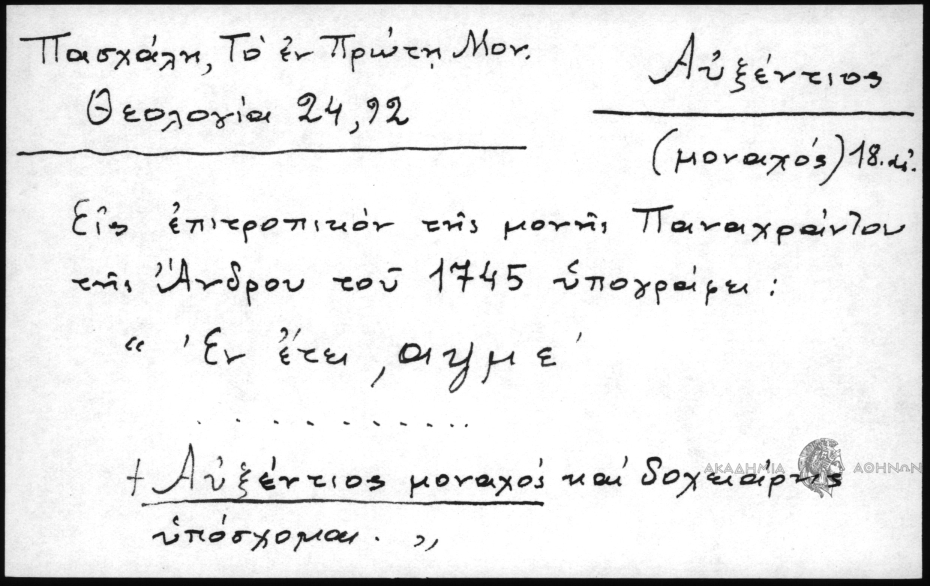 Πασχάλη, Τὸ ἐν Πρώτῃ Μον.
Θεολογία 24,92
Αὐξέντιος
(μοναχός) 18.αἰ.
Εἰς ἐπιτροπικόν τῆς μονῆς Παναχράντου
τῆς Ἄνδρου τοῦ 1745 ὑπογράφει :
“ Ἐν ἔτει ͵αψμε΄
. . . . . . . . . . . .
+ Αὐξέντιος μοναχός καί δοχειάρης
ὑπόσχομαι. „
ΑΚΑΔΗΜΙΑ ΑΘΗΝΩΝ